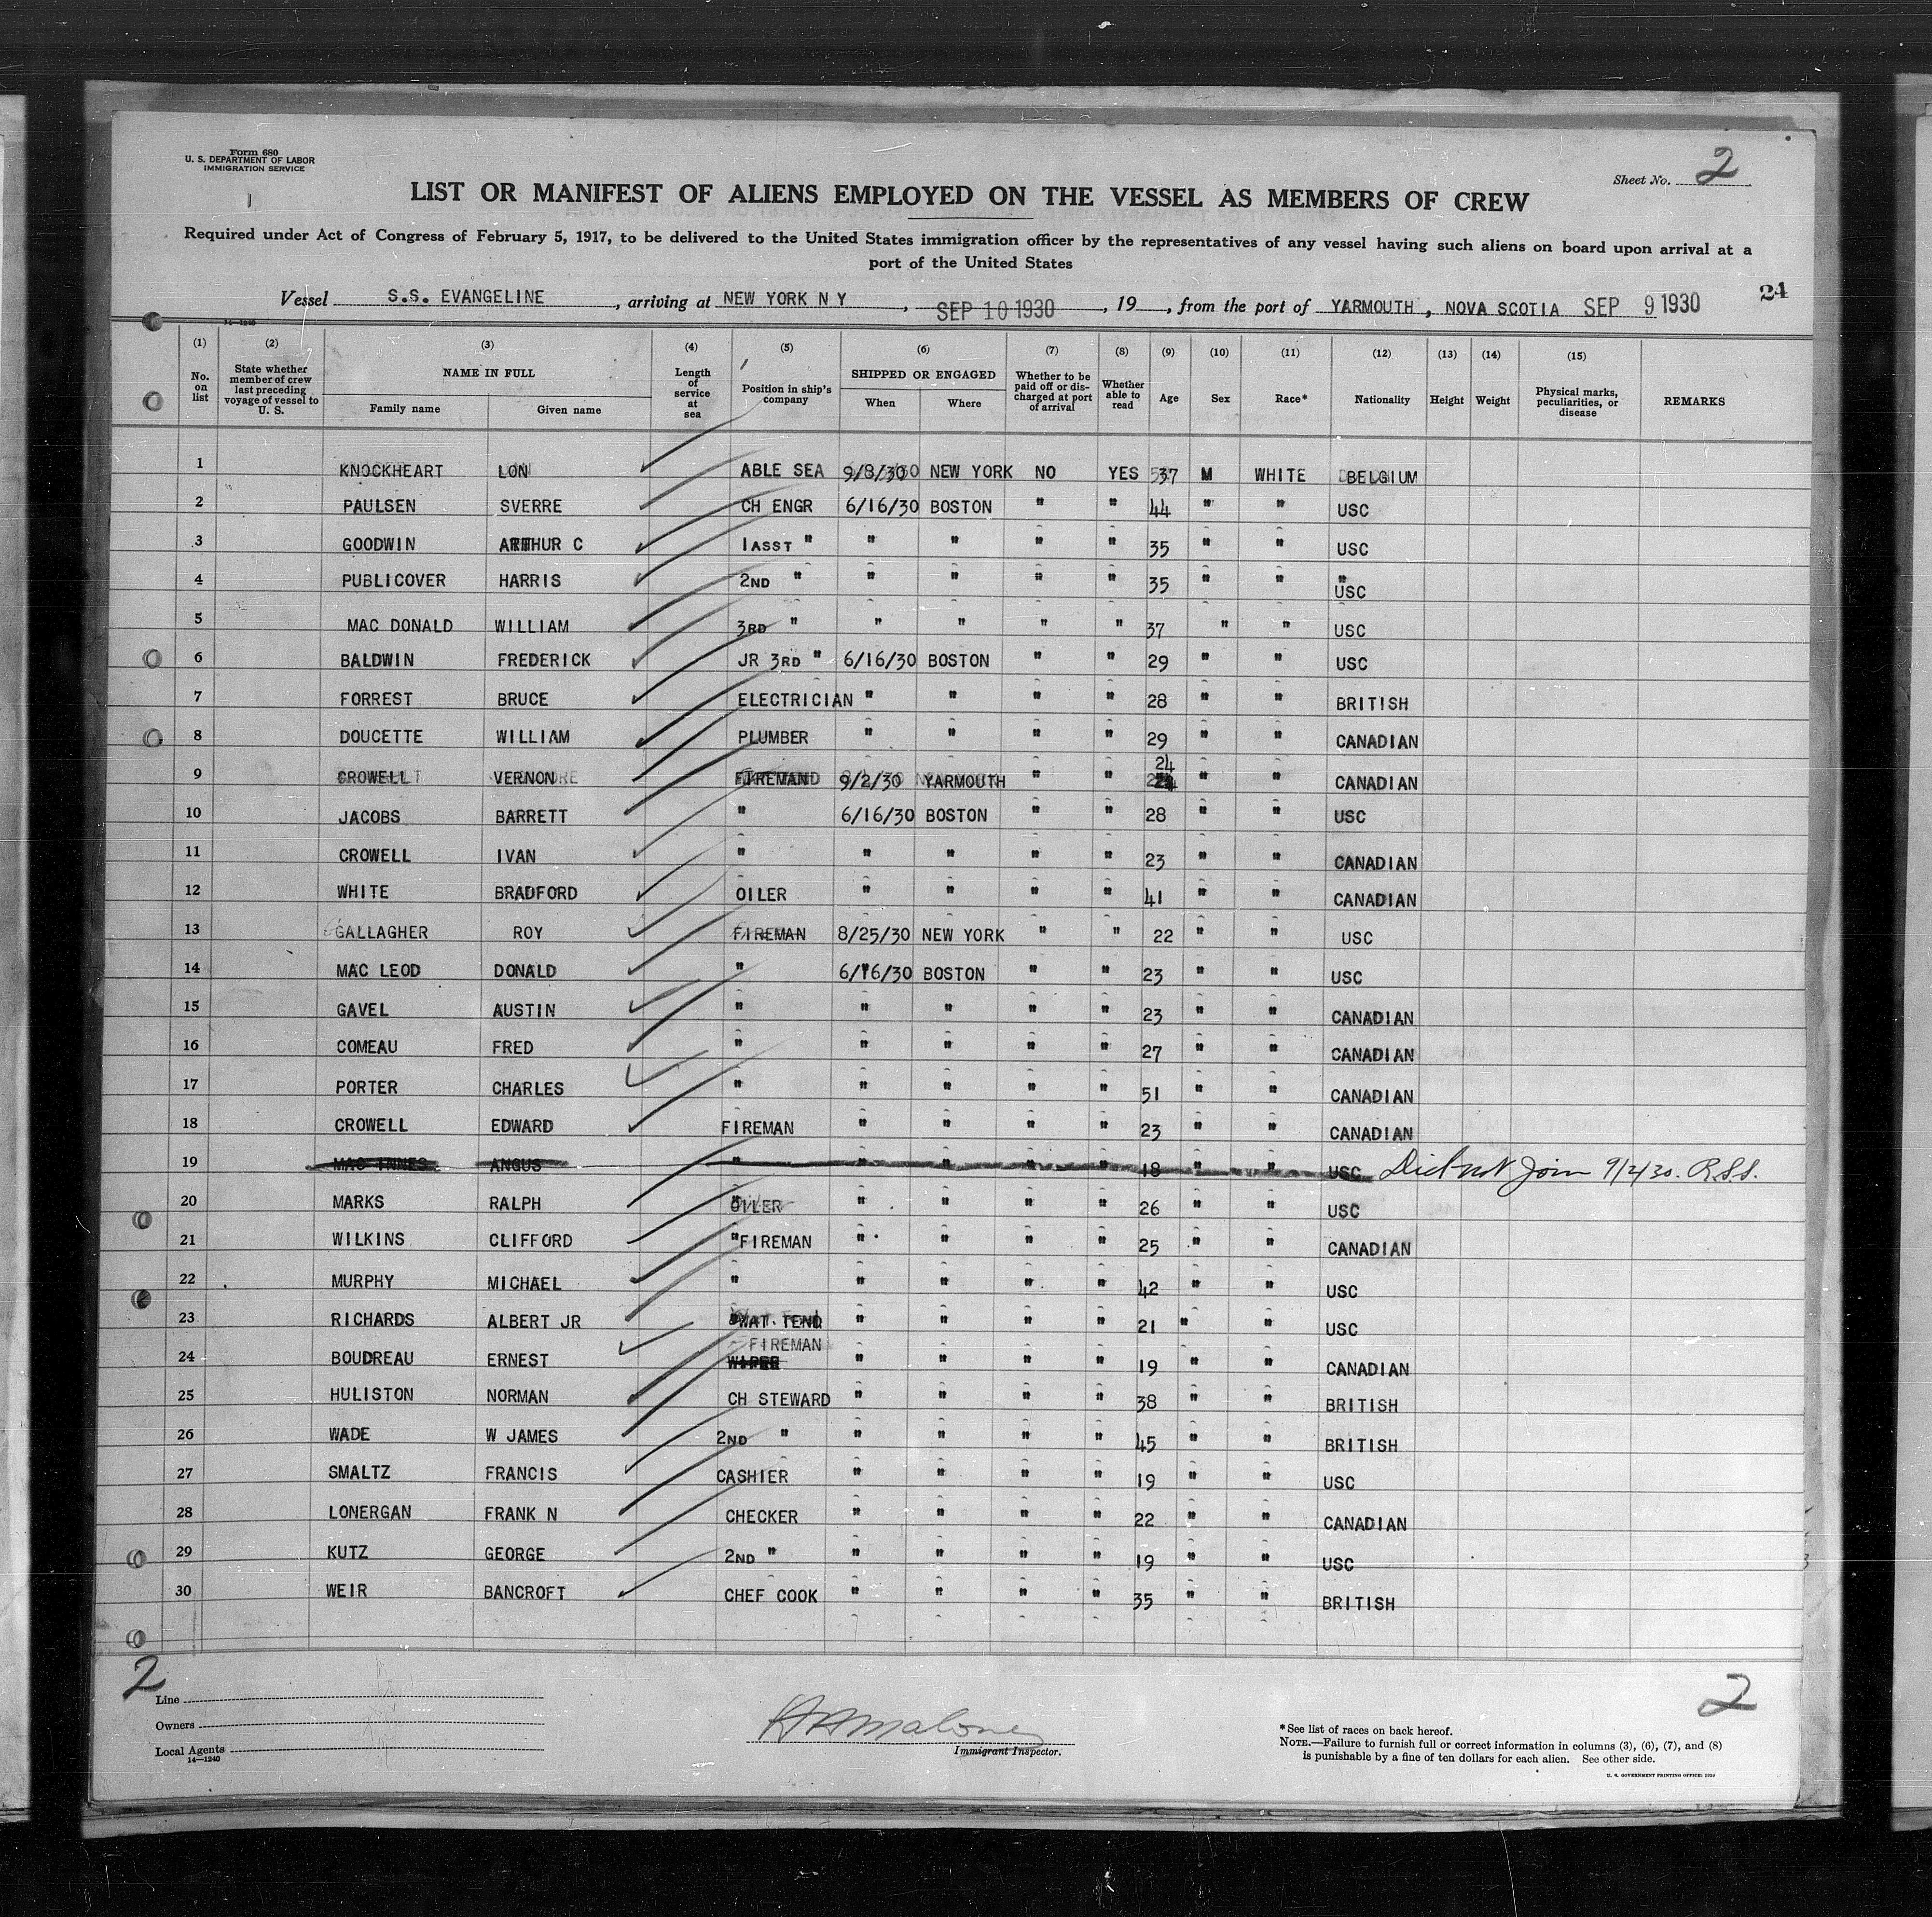 Form 680
U. S. DEPARTMENT OF LABOR
IMMIGRATION SERVICE
Sheet No. 2
LIST OR MANIFEST OF ALIENS EMPLOYED ON THE VESSEL AS MEMBERS OF CREW
Required under Act of Congress of February 5, 1917, to be delivered to the United States immigration officer by the representatives of any vessel having such aliens on board upon arrival at a
port of the United States
Vessel S.S. EVANGELINE, arriving at NEW YORK N Y, SEP 10 1930, 19, from the port of YARMOUTH, NOVA SCOTIA SEP 9 1930
24
14-1240
(1) (2) (3) (4) (5) (6) (7) (8) (9) (10) (11) (12) (13) (14) (15)
No. on list State whether member of crew last preceding voyage of vessel to U. S. NAME IN FULL Family name Given name Length of service at sea Position in ship's company SHIPPED OR ENGAGED When Where Whether to be paid off or discharged at port of arrival Whether able to read Age Sex Race* Nationality Height Weight Physical marks, peculiarities, or disease REMARKS
1 KNOCKHEART LON ABLE SEA 9/8/30 NEW YORK NO YES 37 M WHITE BELGIUM
2 PAULSEN SVERRE CH ENGR 6/16/30 BOSTON " " 44 " " USC
3 GOODWIN ARTHUR C 1ASST " " " " " 35 " " USC
4 PUBLICOVER HARRIS 2ND " " " " " 35 " " USC
5 MAC DONALD WILLIAM 3RD " " " " " 37 " " USC
6 BALDWIN FREDERICK JR 3RD " 6/16/30 BOSTON " " 29 " " USC
7 FORREST BRUCE ELECTRICIAN " " " " 28 " " BRITISH
8 DOUCETTE WILLIAM PLUMBER " " " " 29 " " CANADIAN
9 CROWELL VERNON FIREMAN 9/2/30 YARMOUTH " " 24 " " CANADIAN
10 JACOBS BARRETT " 6/16/30 BOSTON " " 28 " " USC
11 CROWELL IVAN " " " " " 23 " " CANADIAN
12 WHITE BRADFORD OILER " " " " 41 " " CANADIAN
13 GALLAGHER ROY FIREMAN 8/25/30 NEW YORK " " 22 " " USC
14 MAC LEOD DONALD " 6/16/30 BOSTON " " 23 " " USC
15 GAVEL AUSTIN " " " " " 23 " " CANADIAN
16 COMEAU FRED " " " " " 27 " " CANADIAN
17 PORTER CHARLES " " " " " 51 " " CANADIAN
18 CROWELL EDWARD FIREMAN " " " " 23 " " CANADIAN
19 MAC INNES ANGUS " " " " " 18 " " USC Did not Join 9/2/30. R.S.S.
20 MARKS RALPH OILER " " " " 26 " " USC
21 WILKINS CLIFFORD "FIREMAN " " " " 25 " " CANADIAN
22 MURPHY MICHAEL " " " " " 42 " " USC
23 RICHARDS ALBERT JR WAT. TEND " " " " 21 " " USC
24 BOUDREAU ERNEST WIPER FIREMAN " " " " 19 " " CANADIAN
25 HULISTON NORMAN CH STEWARD " " " " 38 " " BRITISH
26 WADE W JAMES 2ND " " " " " 45 " " BRITISH
27 SMALTZ FRANCIS CASHIER " " " " 19 " " USC
28 LONERGAN FRANK N CHECKER " " " " 22 " " CANADIAN
29 KUTZ GEORGE 2ND " " " " " 19 " " USC
30 WEIR BANCROFT CHEF COOK " " " " 35 " " BRITISH
2
2
Line
Owners
Local Agents
14-1240
Malone
Immigrant Inspector.
*See list of races on back hereof.
NOTE.—Failure to furnish full or correct information in columns (3), (6), (7), and (8)
is punishable by a fine of ten dollars for each alien. See other side.
U. S. GOVERNMENT PRINTING OFFICE: 1929